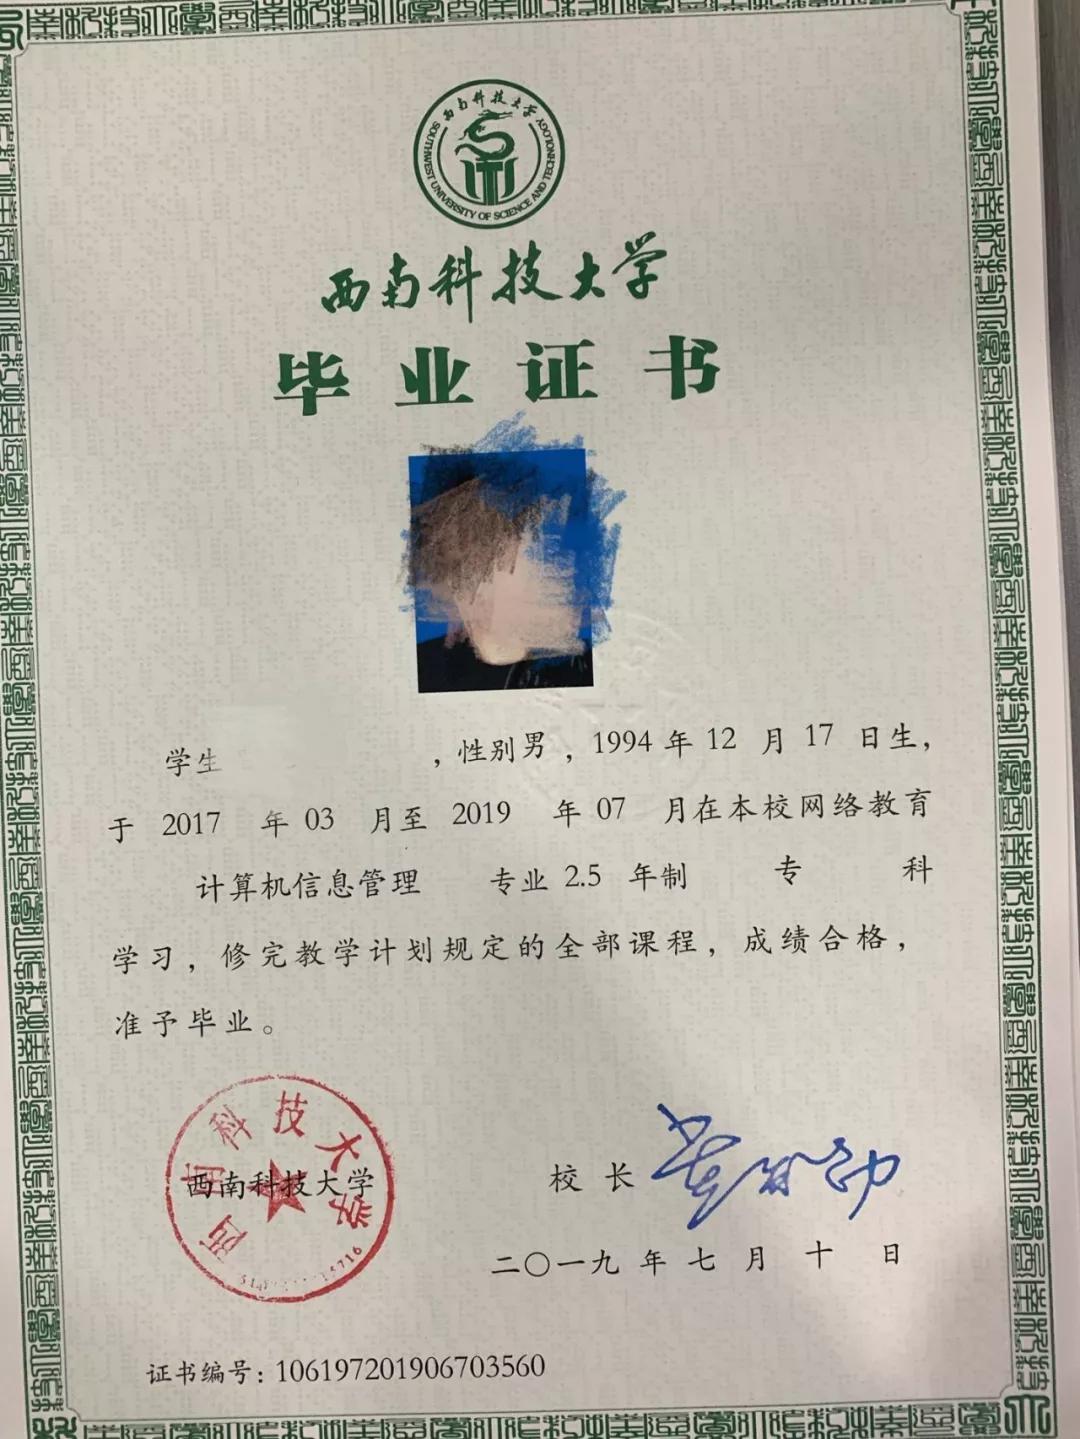 西南科技大学
SOUTHWEST UNIVERSITY OF SCIENCE AND TECHNOLOGY
西南科技大学
毕业证书
学生 ，性别男，1994年12月17日生，
于 2017 年 03 月至 2019 年 07 月在本校网络教育
计算机信息管理 专业 2.5 年制 专 科
学习，修完教学计划规定的全部课程，成绩合格，
准予毕业。
西南科技大学
西南科技大学
校长
二〇一九年七月十日
证书编号：106197201906703560